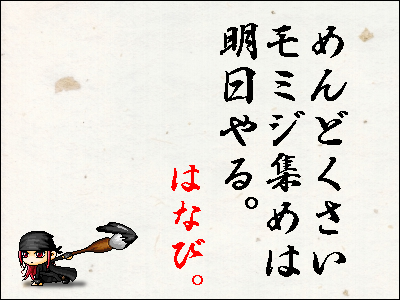 めんどくさい
モミジ集めは
明日やる。
はなび。